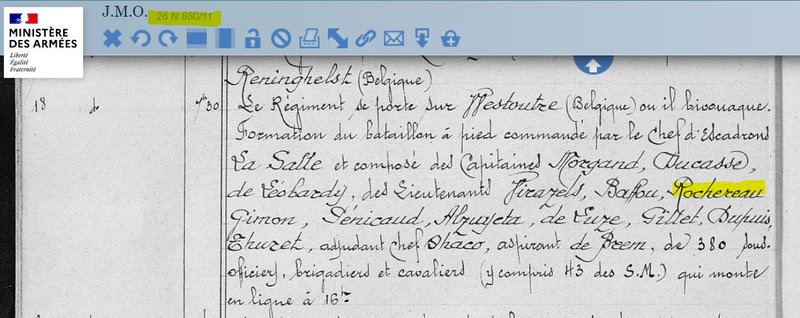 J.M.O. 26 N 880/11
MINISTÈRE
DES ARMÉES
Liberté
Égalité
Fraternité
Reninghelst (Belgique)
18 do 7h30 Le Régiment se porte sur Westoutre (Belgique) ou il bivouaque.
Formation du bataillon à pied commandé par le Chef d'Escadrons
La Salle et composé des Capitaines Morgand, Ducasse,
de Léobardy, des Lieutenants Virazels, Baffou, Rochereau
Gimon, Sénicaud, Alzuyeta, de Luze, Gillet, Dupuis,
Thuret, adjudant chef Shaco, aspirant de Brem, de 380 sous-
officiers, brigadiers et cavaliers (y compris 43 des S.M.) qui monte
en ligne à 16h